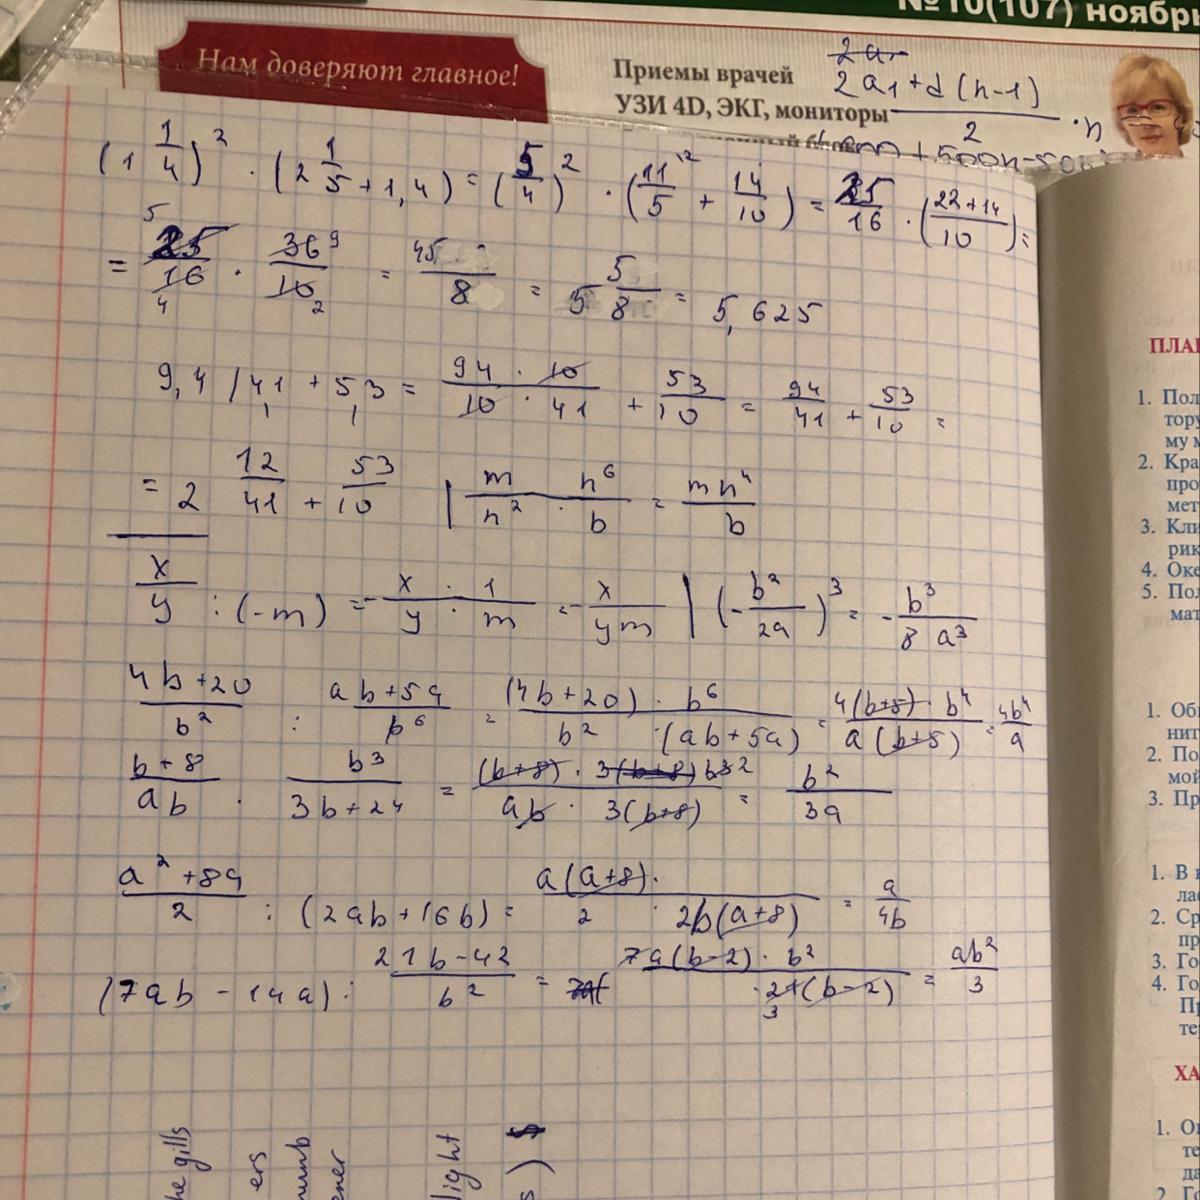 №10(107) ноябрь
Нам доверяют главное!
Приемы врачей
УЗИ 4D, ЭКГ, мониторы
2a
(2a₁+d(n-1))/2 · n
(1 1/4)² · (2 1/5 + 1,4) = (5/4)² · (11/5 + 14/10) = 25/16 · ((22+14)/10) =
= 25/16 · 36/10 = 45/8 = 5 5/8 = 5,625
9,4 / 41 + 5,3 = (94 · 10)/(10 · 41) + 53/10 = 94/41 + 53/10 =
= 2 12/41 + 53/10 | m/n² · n⁶/b = mn⁴/b
x/y : (-m) = - x/y · 1/m = - x/ym | (- b²/2a)³ = - b³/8a³
(4b+20)/b² : (ab+5a)/b⁶ = ((4b+20) · b⁶)/(b² · (ab+5a)) = (4(b+5) · b⁴)/(a(b+5)) = 4b⁴/a
(b+8)/ab · b³/(3b+24) = ((b+8) · 3(b+8) b³ ²)/(ab · 3(b+8)) = b²/3a
(a²+8a)/2 : (2ab+16b) = (a(a+8) ·)/(2 · 2b(a+8)) = a/4b
(7ab - 14a) : (21b-42)/b² = (7a(b-2) · b²)/( · 21(b-2)) = ab²/3
the gills
ers
ener
light
s) $
ПЛАН
1. Пол
тору
му м
2. Кра
про
мет
3. Кли
рик
4. Оке
5. Пол
мат
1. Об
нит
2. По
мой
3. Пр
1. В
лас
2. Ср
пр
3. Го
4. Го
Пр
те
ХА
1. О
те
да
2. Г